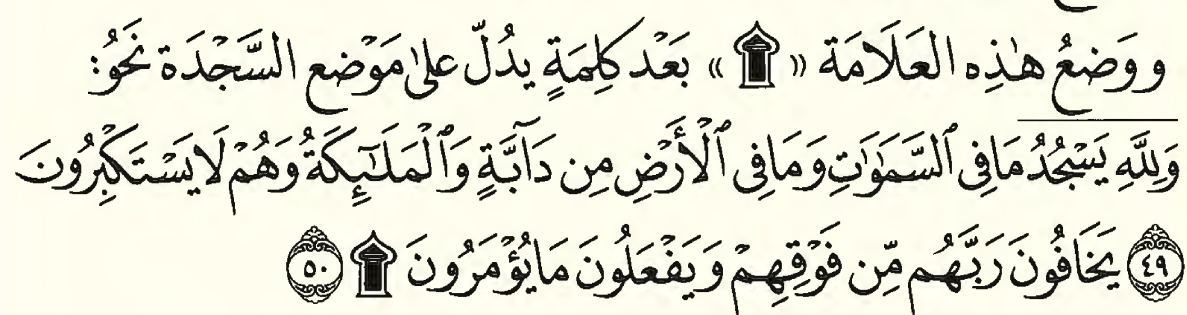 ووَضعُ هٰذِه العَلَامَة « ۩ » بَعْد كَلِمَةٍ يدُلّ علىٰ مَوْضع السَّجْدَة نَحْوُ:
وَلِلَّهِ يَسْجُدُ مَا فِى ٱلسَّمَٰوَٰتِ وَمَا فِى ٱلْأَرْضِ مِن دَآبَّةٍ وَٱلْمَلَٰٓئِكَةُ وَهُمْ لَا يَسْتَكْبِرُونَ
﴿٤٩﴾ يَخَافُونَ رَبَّهُم مِّن فَوْقِهِمْ وَيَفْعَلُونَ مَا يُؤْمَرُونَ ۩ ﴿٥٠﴾